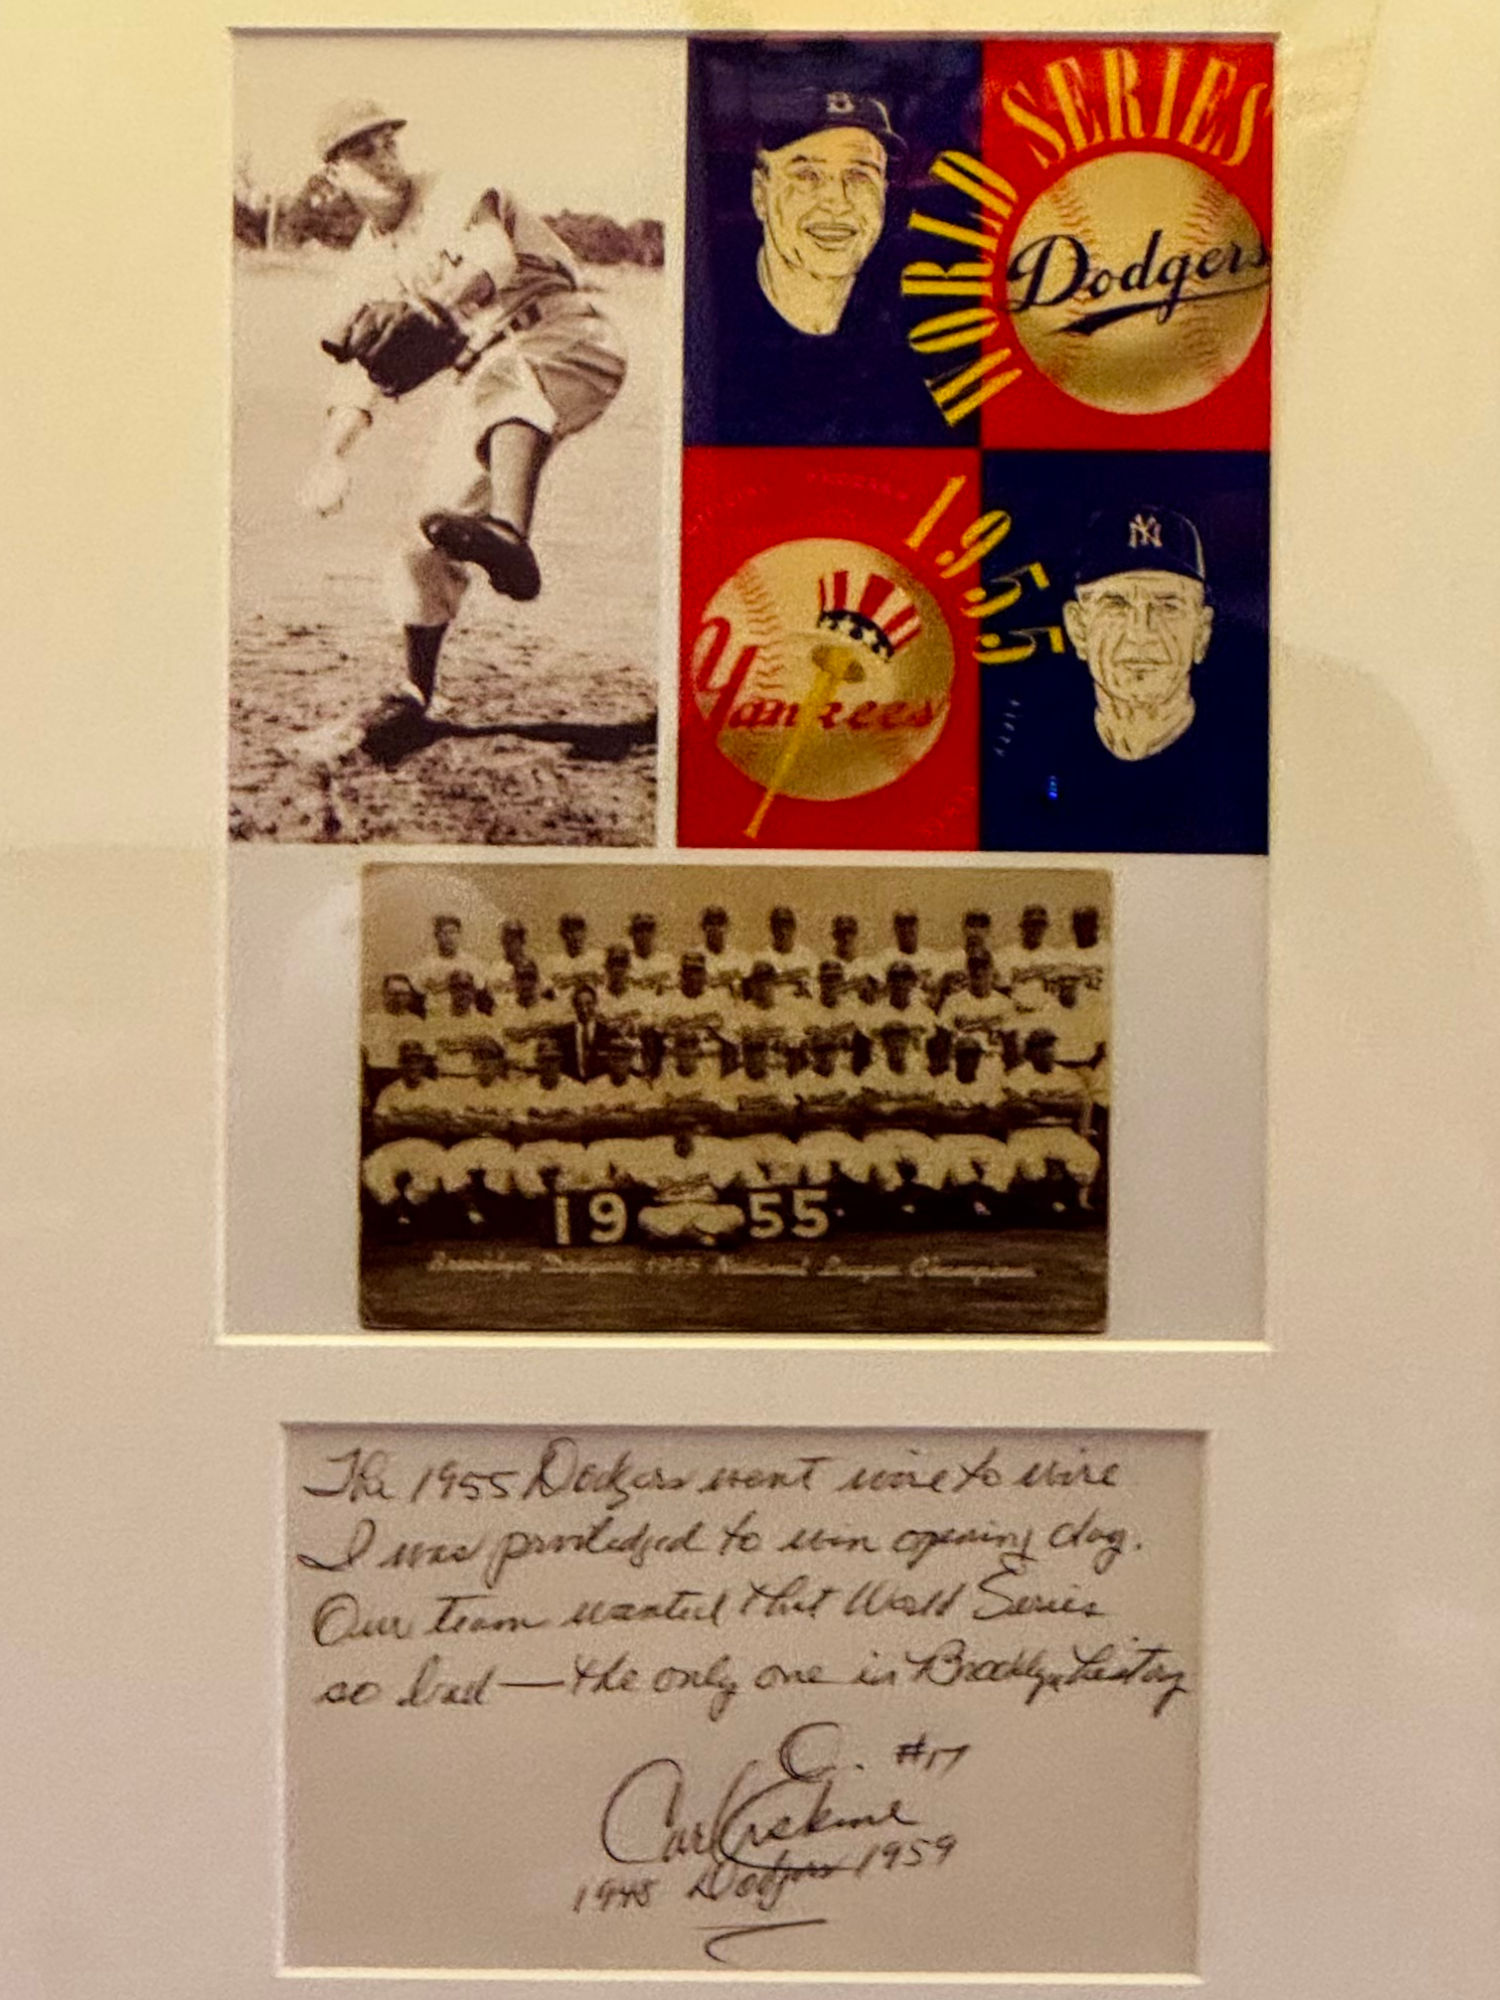 B
WORLD SERIES
Dodgers
OFFICIAL PROGRAM
1955
NY
Yankees
FIFTY
CENTS
1955
Brooklyn Dodgers 1955 National League Champions
The 1955 Dodgers went wire to wire
I was priviledged to win opening day.
Our team wanted that World Series
so bad — the only one in Brooklyn history
O. #17
Carl Erskine
1948 Dodgers 1959